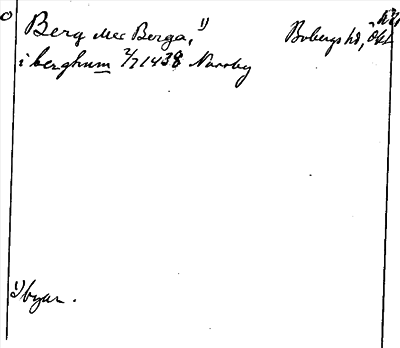 Berg och Berga, 1) Bobergs hd, Ögl
i berghum 2/7 1438 Norrby
1) byar.